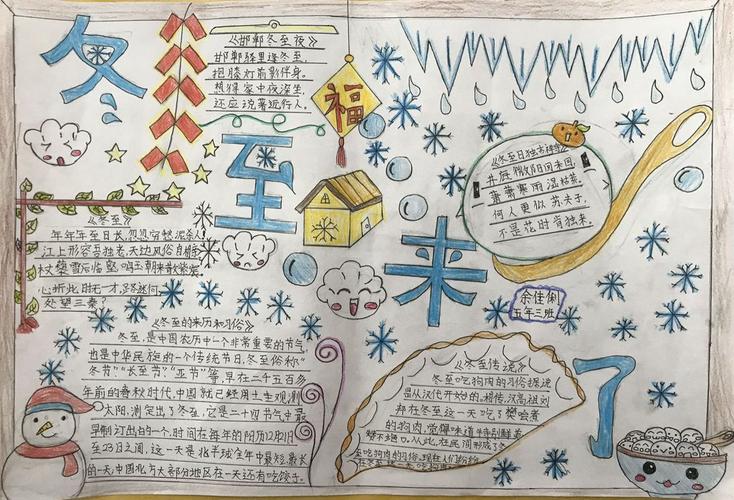 冬
至
来
了
福
《邯郸冬至夜》
邯郸驿里逢冬至,
抱膝灯前影伴身。
想得家中夜深坐,
还应说著远行人。
《冬至日独游吉祥寺》
井底微阳回未回,
萧萧寒雨湿枯荄。
何人更似苏夫子,
不是花时肯独来。
《冬至》
年年至日长为客,忽忽穷愁泥杀人
江上形容吾独老,天边风俗自相亲
杖藜雪后临丹壑,鸣玉朝来散紫宸
心折此时无一寸,路迷何
处望三秦?
余佳俐
五年三班
《冬至的来历和习俗》
冬至,是中国农历中一个非常重要的节气,
也是中华民族的一个传统节日,冬至俗称“
冬节”“长至节”“亚节”等,早在二千五百多
年前的春秋时代,中国就已经用土圭观测
太阳,测定出了冬至,它是二十四节气中最
早制订出的一个,时间在每年的阳历12月21日
至23日之间,这一天是北半球全年中最短,最长
的一天,中国北方大部分地区在一天还有吃饺子,
《冬至传说》
冬至吃狗肉的习俗据说
是从汉代开始的。相传,汉高祖刘
邦在冬至这一天吃了樊哙煮
的狗肉,觉得味道特别鲜美
赞不绝口。从此在民间形成了冬
至吃狗肉的习俗。现在人们纷纷
在冬至这一天吃狗肉